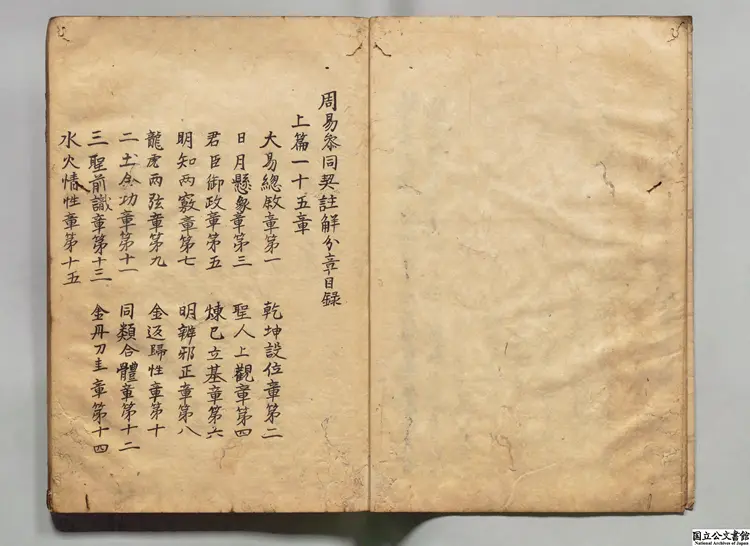 周易參同契註解分章目錄
上篇一十五章
大易總敘章第一　乾坤設位章第二
日月懸象章第三　聖人上觀章第四
君臣御政章第五　煉已立基章第六
明知两竅章第七　明辨邪正章第八
龍虎两弦章第九　金返歸性章第十
二土全功章第十一　同類合體章第十二
三聖前識章第十三　金丹刀圭章第十四
水火情性章第十五
国立公文書館
National Archives of Japan